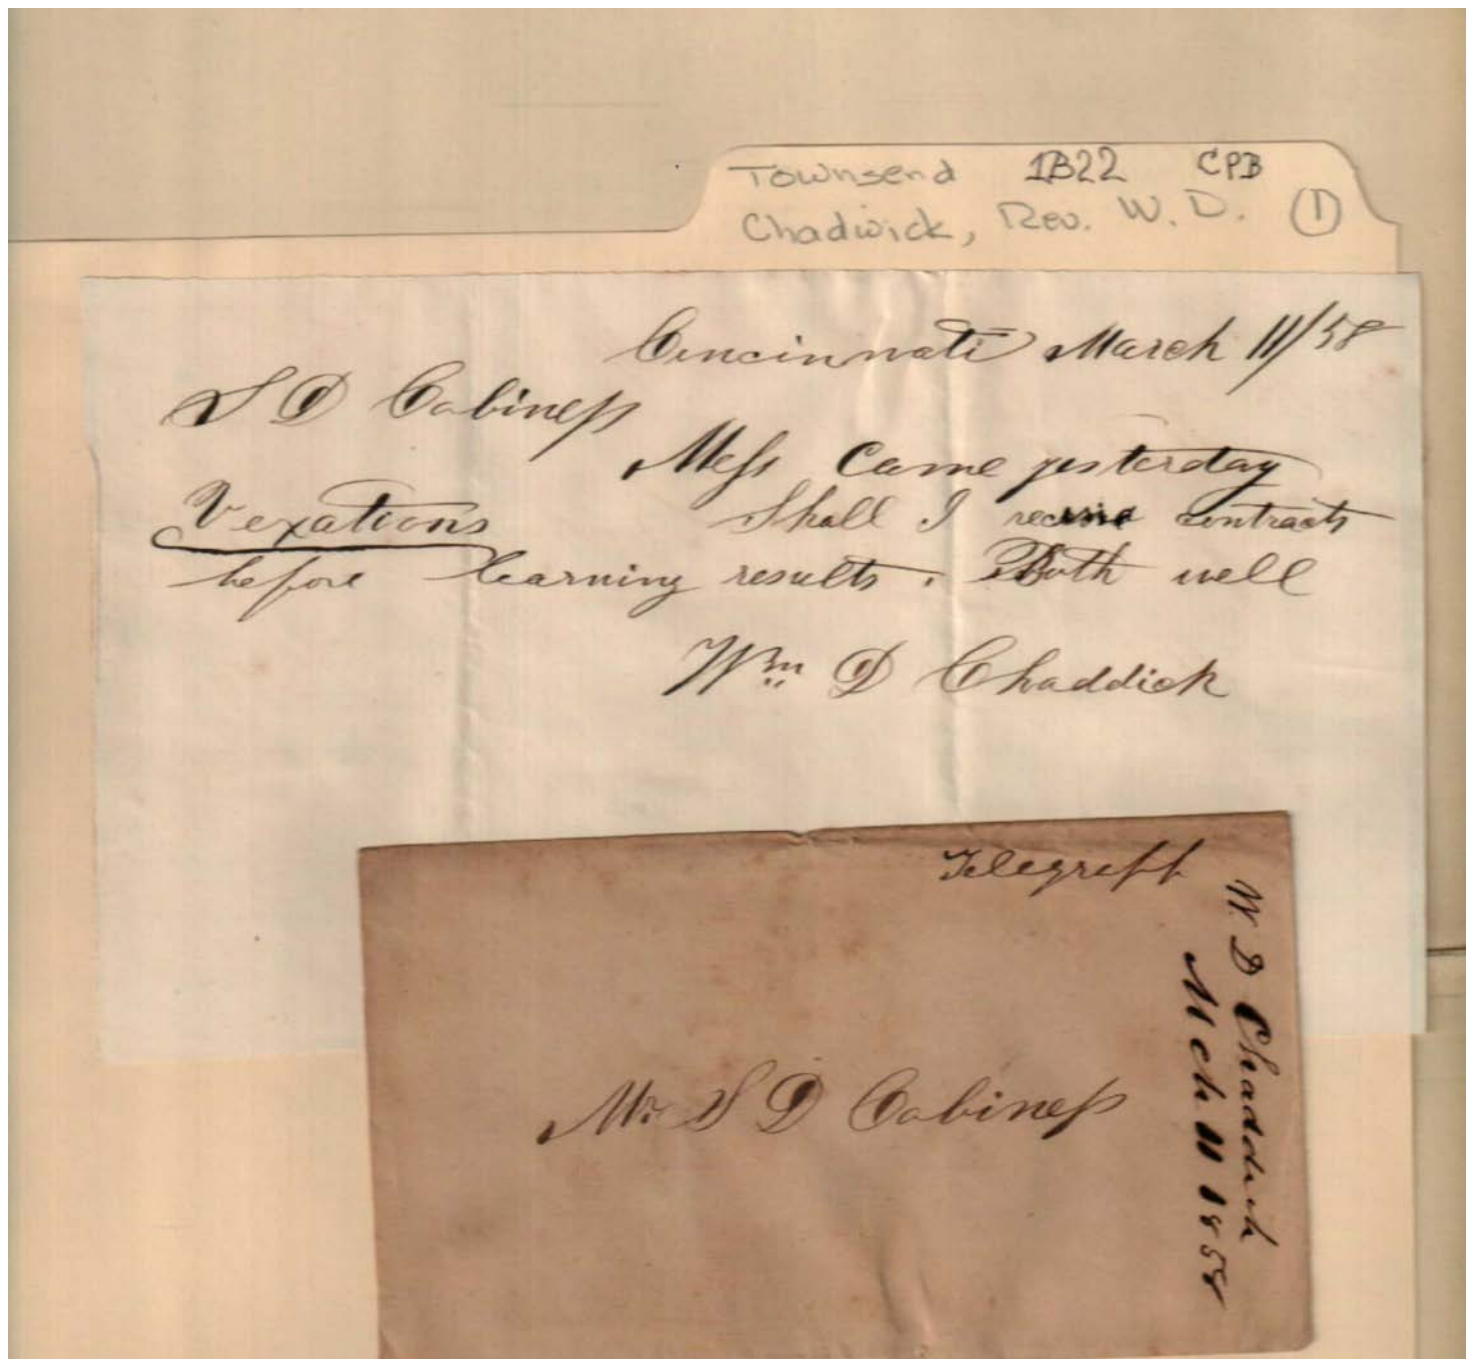 Townsend 1B22 CPB
Chadwick, Rev. W. D. (1)
Cincinnati March 11/58
S D Cabiness
Mess Came yesterday
Vexations Shall I contracts
before learning results. Both well
Wm D Chaddick
Telegraph
W. D Chaddick
Mch 11 1858
Mr S D Cabiness